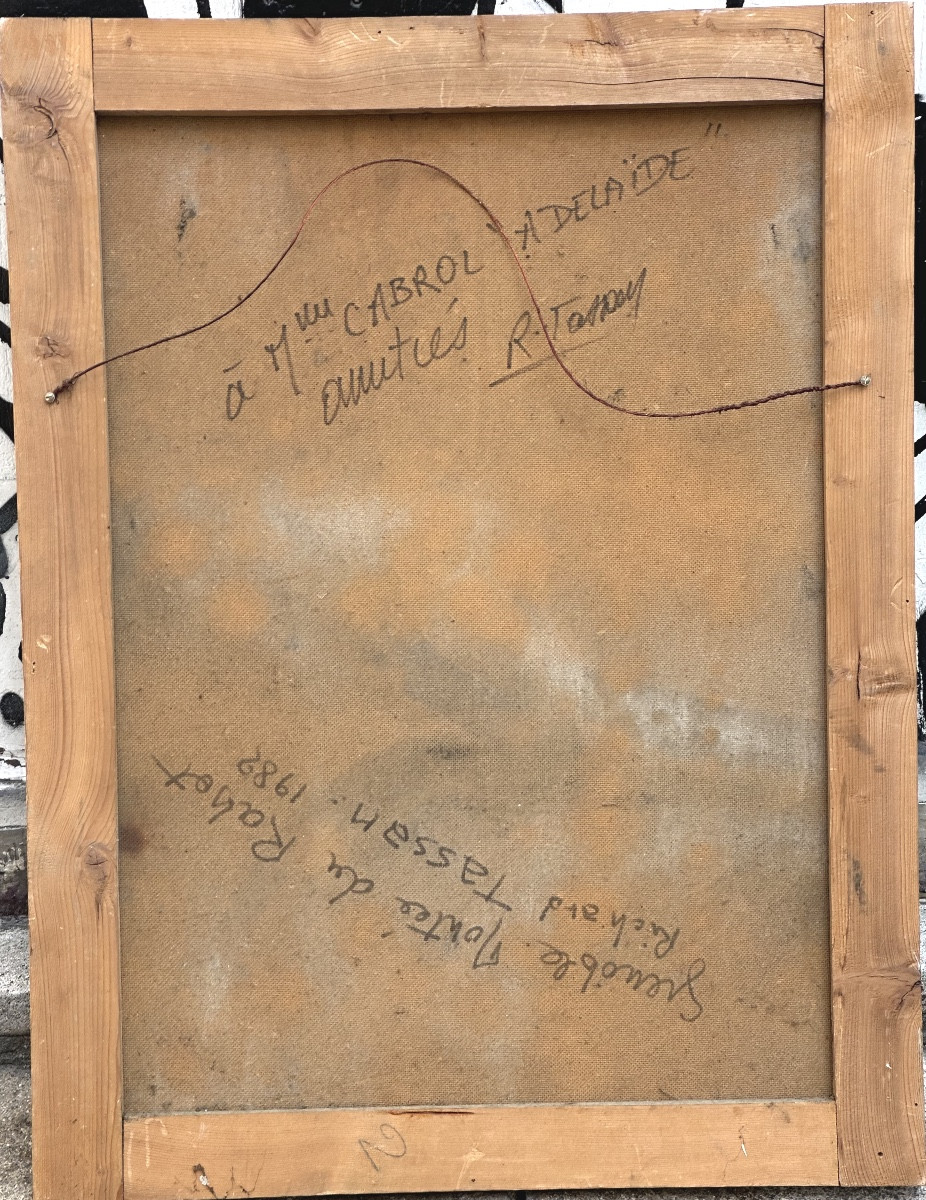 à Mme CABROL "ADELAÏDE"
amitiés R. Tassan
Grenoble. Montée du Rabot
Richard Tassan. 1982